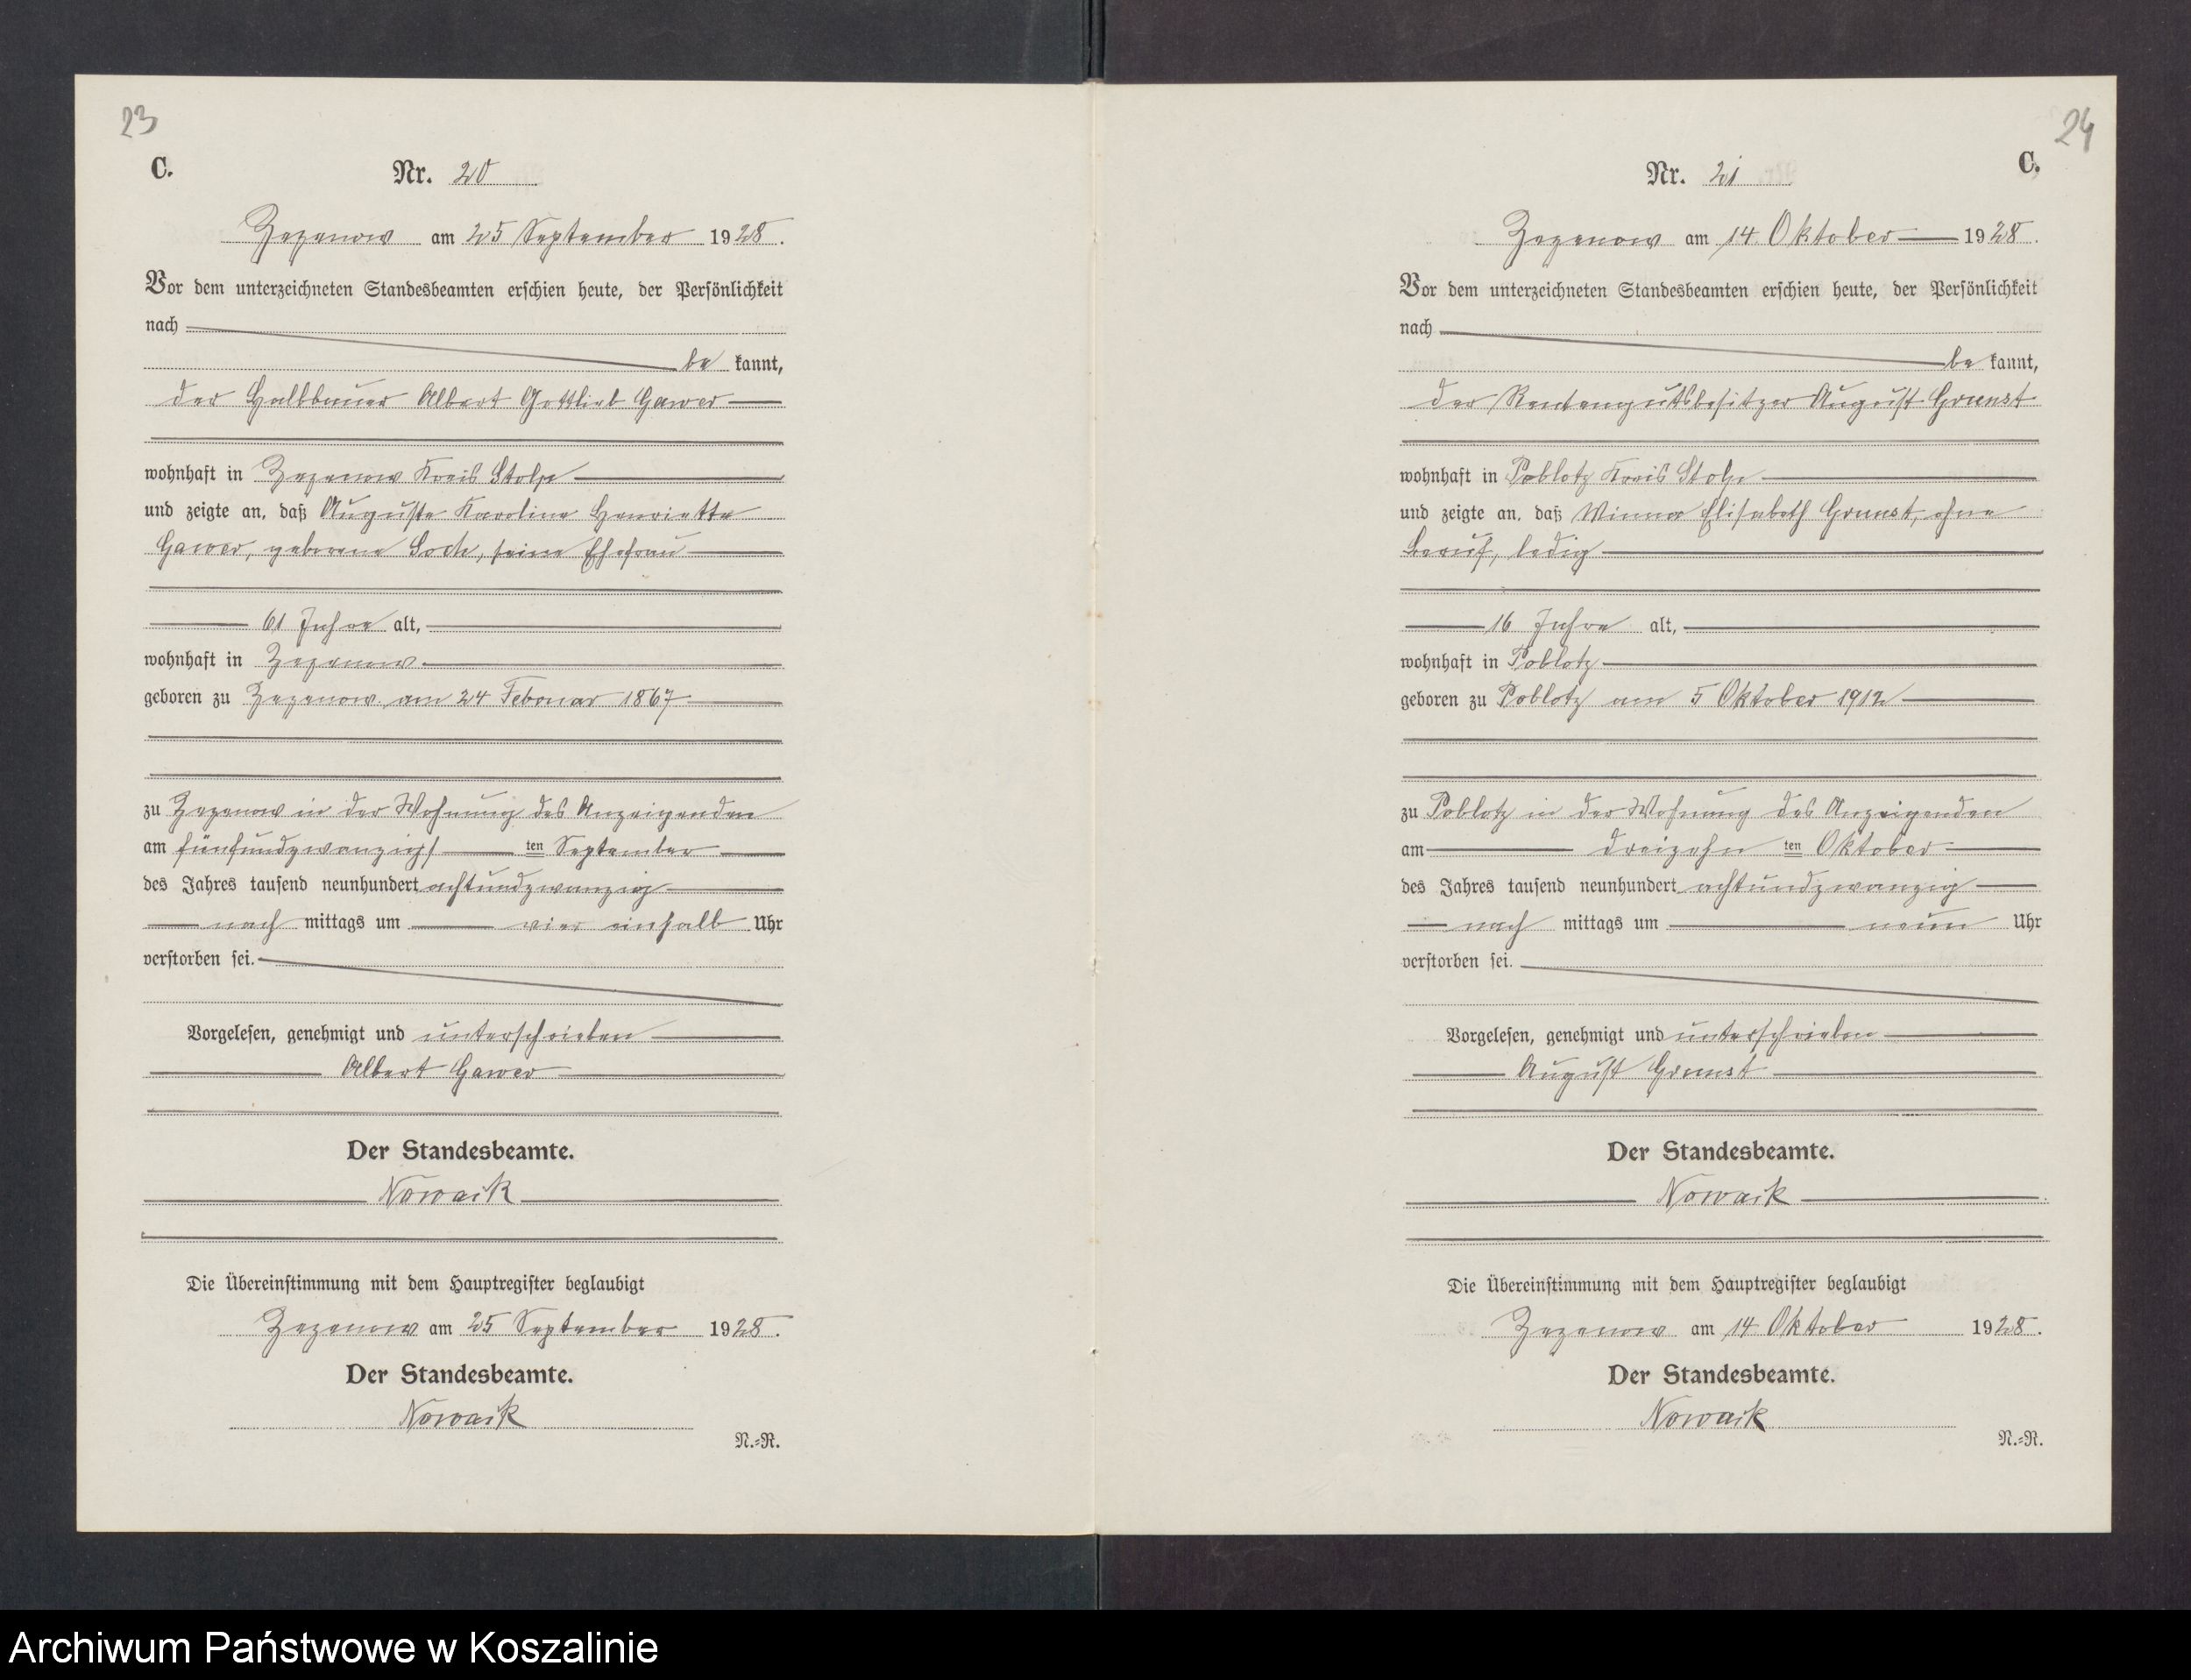 23
C.
Nr. 20
Zezenow am 25 September 1928.
Vor dem unterzeichneten Standesbeamten erschien heute, der Persönlichkeit
nach
be kannt,
der Halbbauer Albert Gottlieb Gawer
wohnhaft in Zezenow Kreis Stolp
und zeigte an, daß Auguste Karoline Henriette
Gawer, geborene Sock, seine Ehefrau
61 Jahre alt,
wohnhaft in Zezenow
geboren zu Zezenow am 24 Februar 1867
zu Zezenow in der Wohnung des Anzeigenden
am fünfundzwanzigs ten September
des Jahres tausend neunhundert achtundzwanzig
nach mittags um vier einhalb Uhr
verstorben sei.
Vorgelesen, genehmigt und unterschrieben
Albert Gawer
Der Standesbeamte.
Nowack
Die Übereinstimmung mit dem Hauptregister beglaubigt
Zezenow am 25 September 1928.
Der Standesbeamte.
Nowack
N.=R.
24
C.
Nr. 21
Zezenow am 14. Oktober 1928.
Vor dem unterzeichneten Standesbeamten erschien heute, der Persönlichkeit
nach
be kannt,
der Rentengutsbesitzer August Grunst
wohnhaft in Poblotz Kreis Stolp
und zeigte an, daß Minna Elisabeth Grunst, ohne
Beruf, ledig
16 Jahre alt,
wohnhaft in Poblotz
geboren zu Poblotz am 5 Oktober 1912
zu Poblotz in der Wohnung des Anzeigenden
am dreizehn ten Oktober
des Jahres tausend neunhundert achtundzwanzig
nach mittags um neun Uhr
verstorben sei.
Vorgelesen, genehmigt und unterschrieben
August Grunst
Der Standesbeamte.
Nowack
Die Übereinstimmung mit dem Hauptregister beglaubigt
Zezenow am 14 Oktober 1928.
Der Standesbeamte.
Nowack
N.=R.
Archiwum Państwowe w Koszalinie